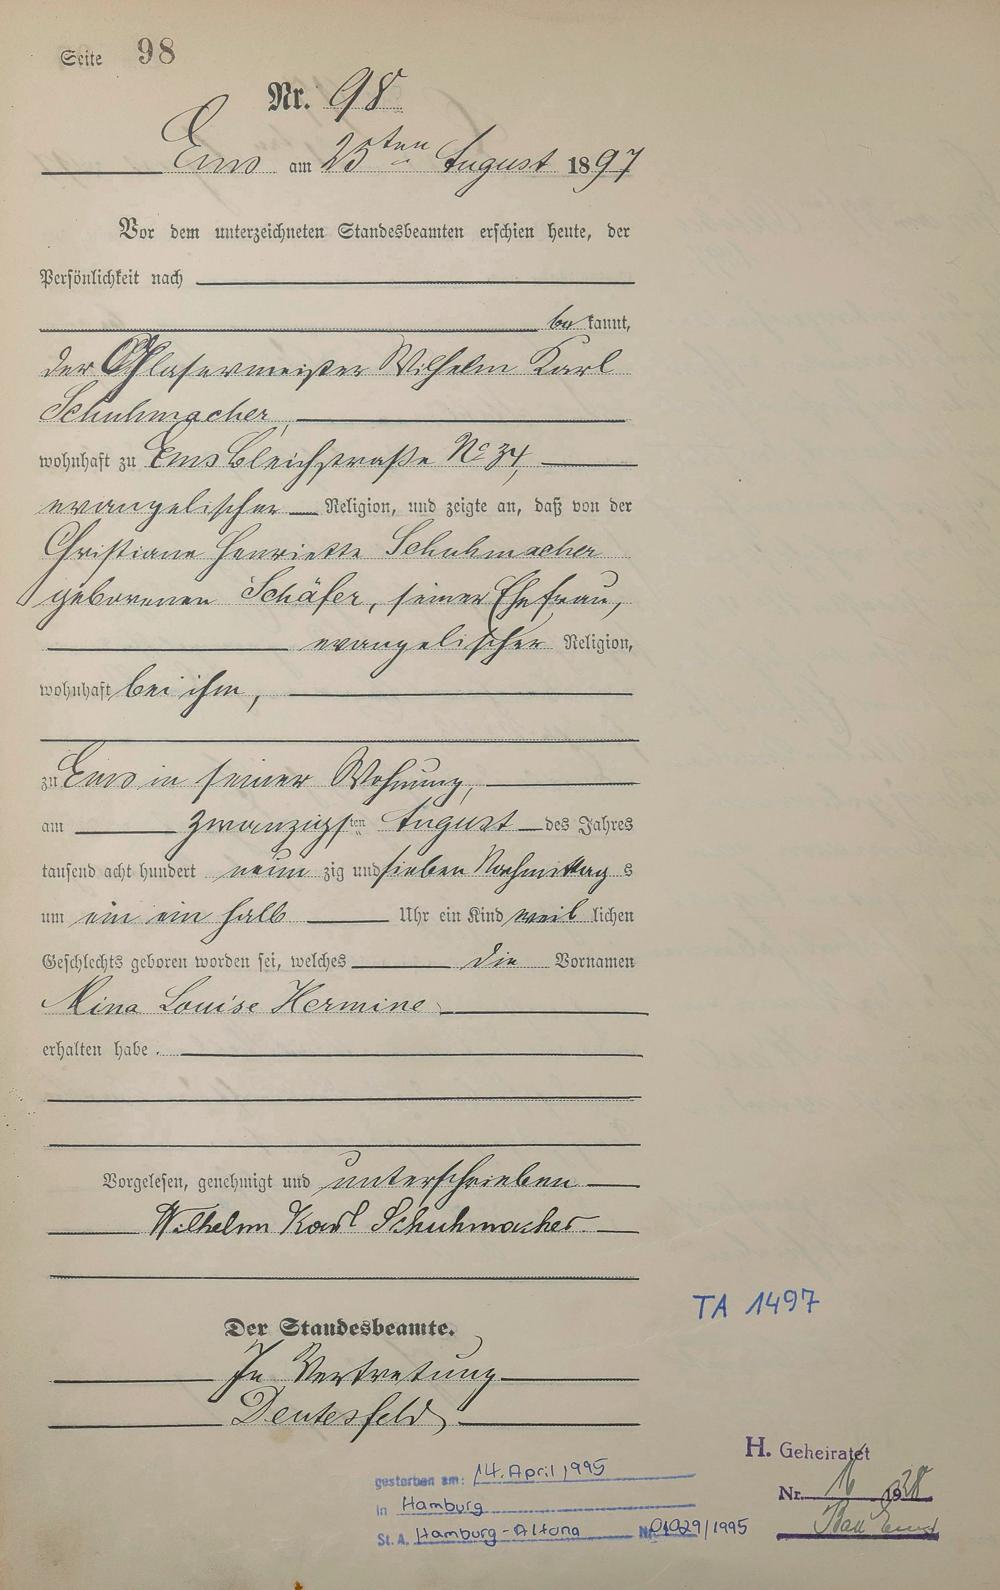 Seite 98
Nr. 98
Ems am 25ten August 1897
Vor dem unterzeichneten Standesbeamten erschien heute, der
Persönlichkeit nach
bekannt,
der Glasermeister Wilhelm Karl
Schuhmacher,
wohnhaft zu Ems Bleichstraße No 34,
evangelischer Religion, und zeigte an, daß von der
Christiane Henriette Schuhmacher
geborenen Schäfer, seiner Ehefrau,
evangelischer Religion,
wohnhaft bei ihm,
zu Ems in seiner Wohnung,
am zwanzigsten August des Jahres
tausend acht hundert neun zig und sieben Nachmittags
um ein ein halb Uhr ein Kind weiblichen
Geschlechts geboren worden sei, welches die Vornamen
Mina Louise Hermine
erhalten habe.
Vorgelesen, genehmigt und unterschrieben
Wilhelm Karl Schuhmacher
TA 1497
Der Standesbeamte.
In Vertretung
Deutesfeld
H. Geheiratet
gestorben am: 14. April 1995
Nr. 16 1938
in Hamburg
Bad Ems
St. A. Hamburg-Altona Nr. 01029/1995